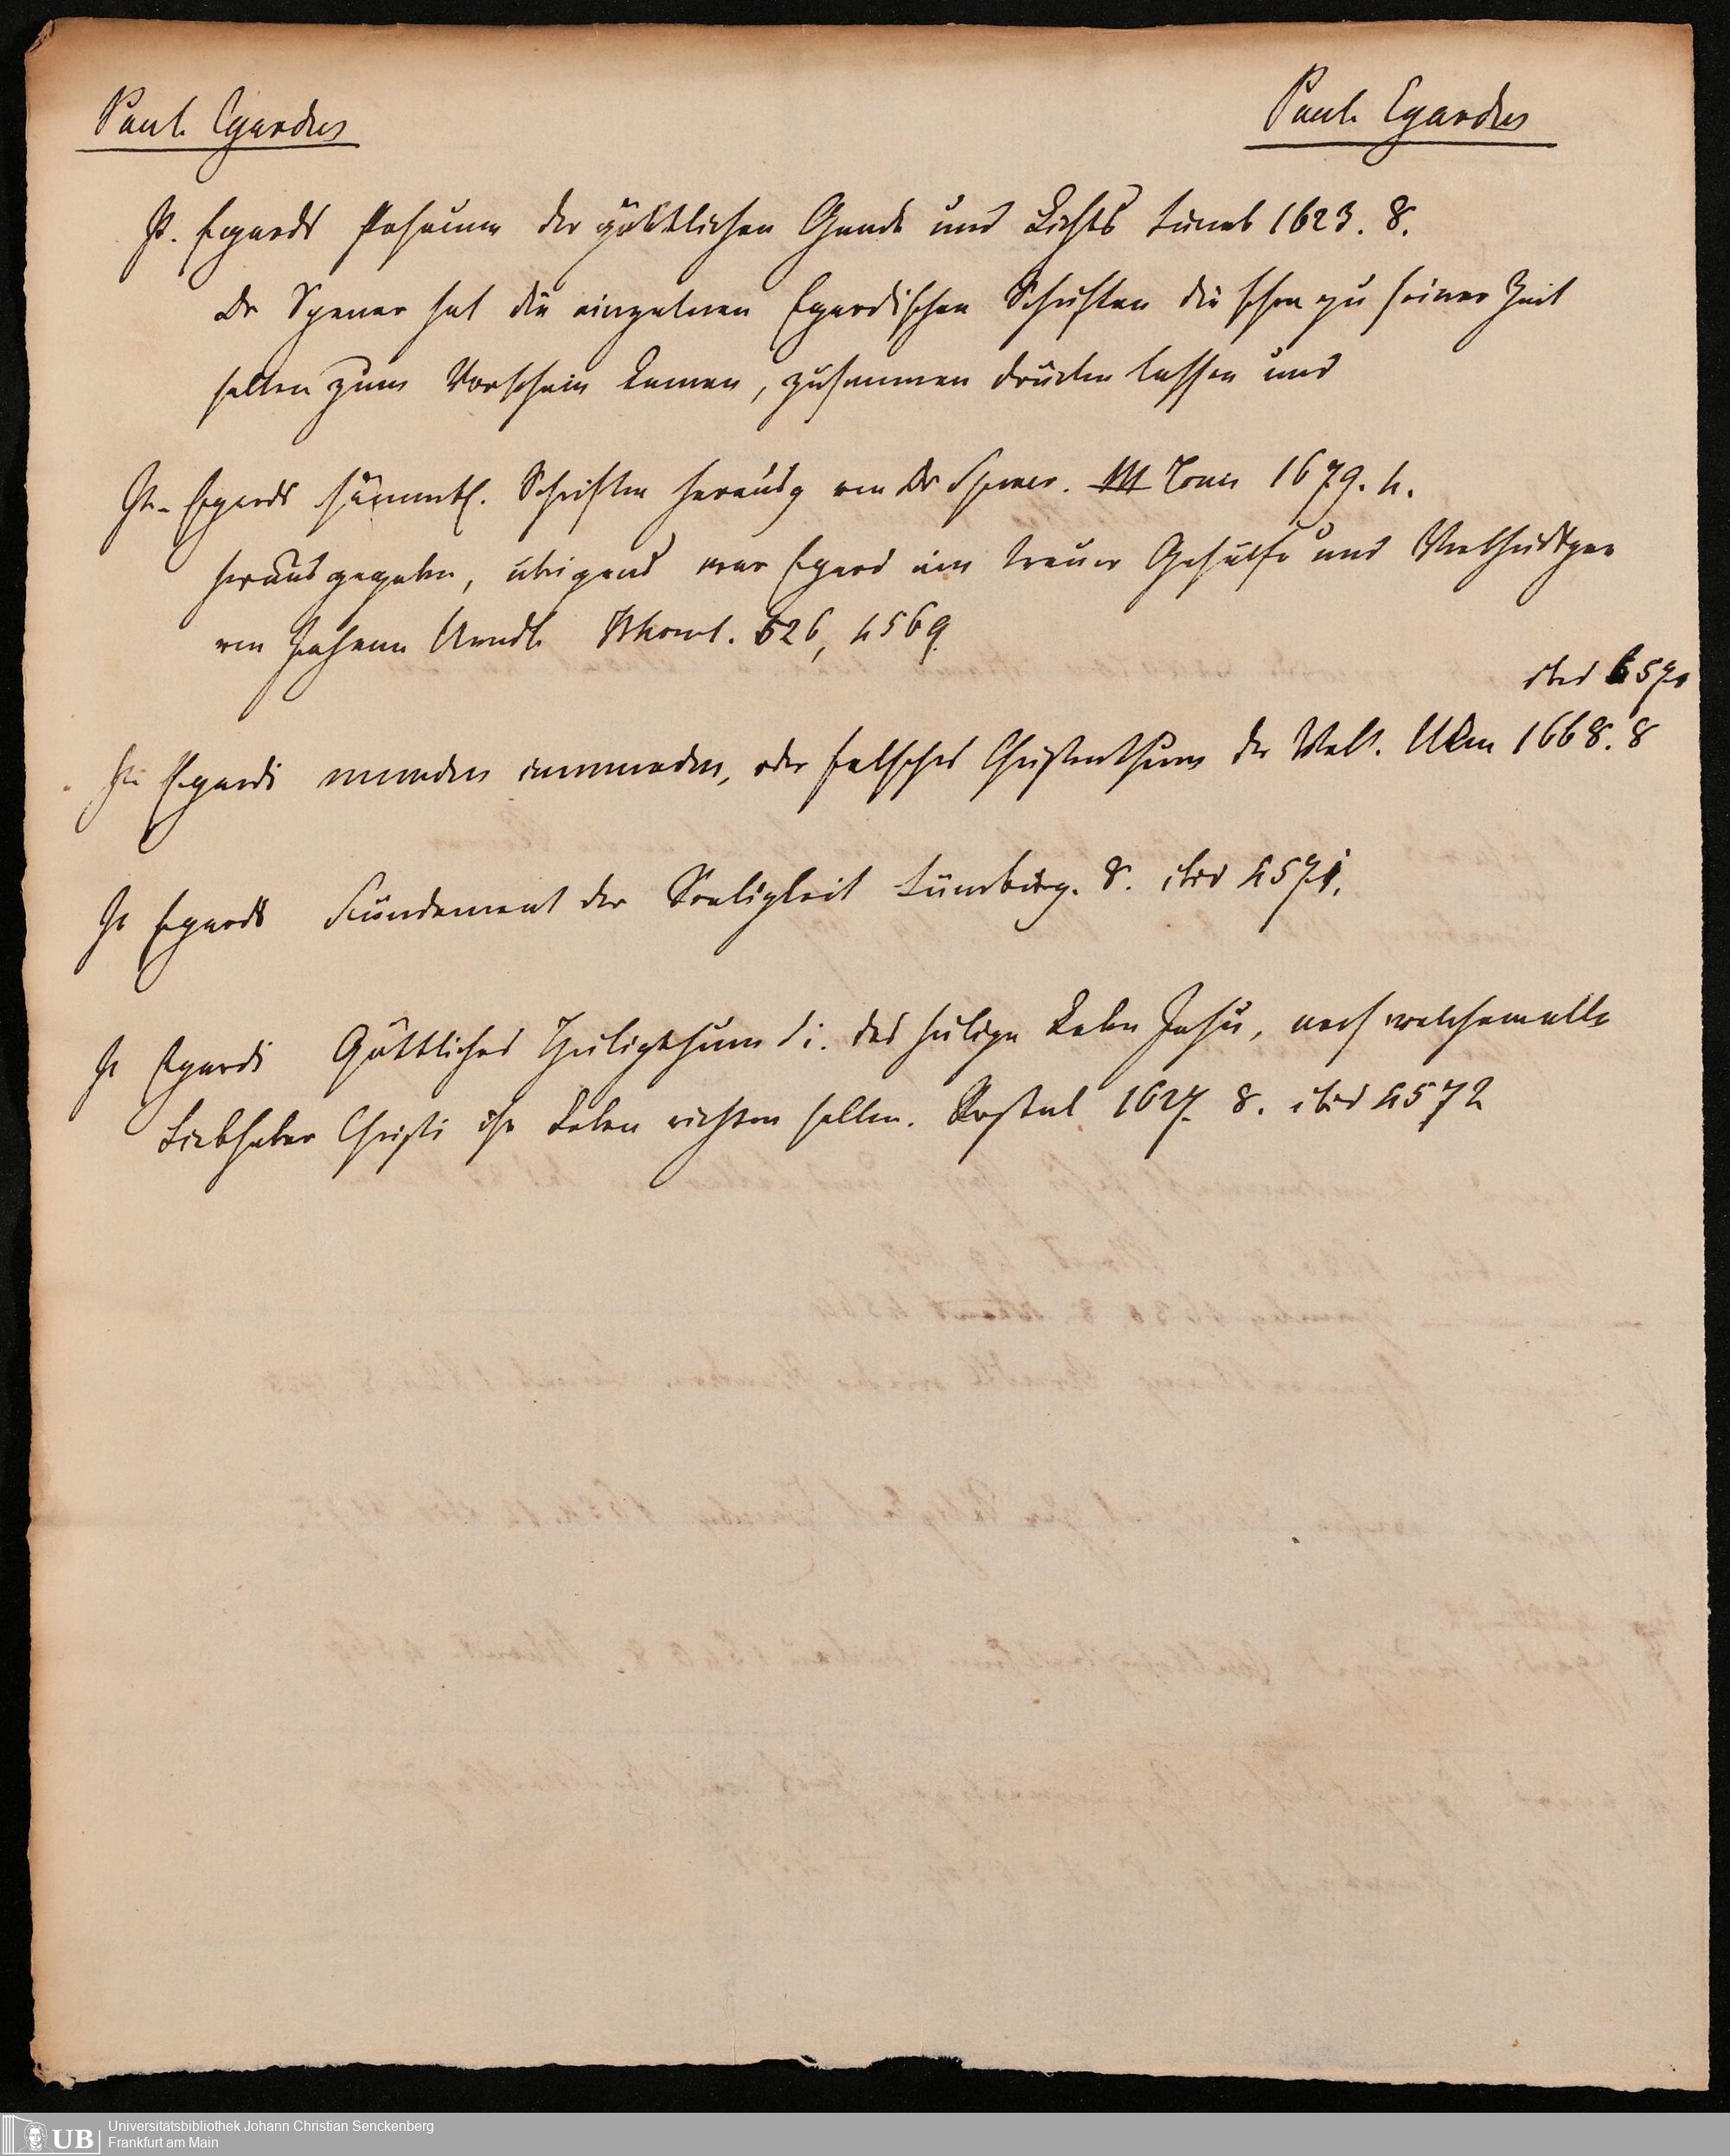 Paul. Egardus
Paul. Egardus
P. Egards Posaune der göttlichen Gnade und Lichts Luneb 1623. 8.
Dr Spener hat die einzelnen Egardischen Schriften die schon zu seiner Zeit
selten zum Vorschein kamen, zusammen drucken lassen und
P. Egards sämmtl. Schriften herausg von Dr Spener. III Tomi 1679. 4.
herausgegeben, übrigens war Egard ein treuer Gehülfe und Vertheidiger
von Johann Arndt. 526, 4569
ibid 4570
P. Egardi mundus immundus, oder falsches Christenthum der Welt. Ulm 1668. 8
P. Egards Fundament der Seeligkeit Lüneburg. 8. ibid 4571.
P. Egardi Göttliches Heiligthum d i. das heilige Leben Jesu, nach welchem alle
Liebhaber Christi ihr Leben richten sollen. Rostock 1627. 8. ibid 4572
UB
Universitätsbibliothek Johann Christian Senckenberg
Frankfurt am Main